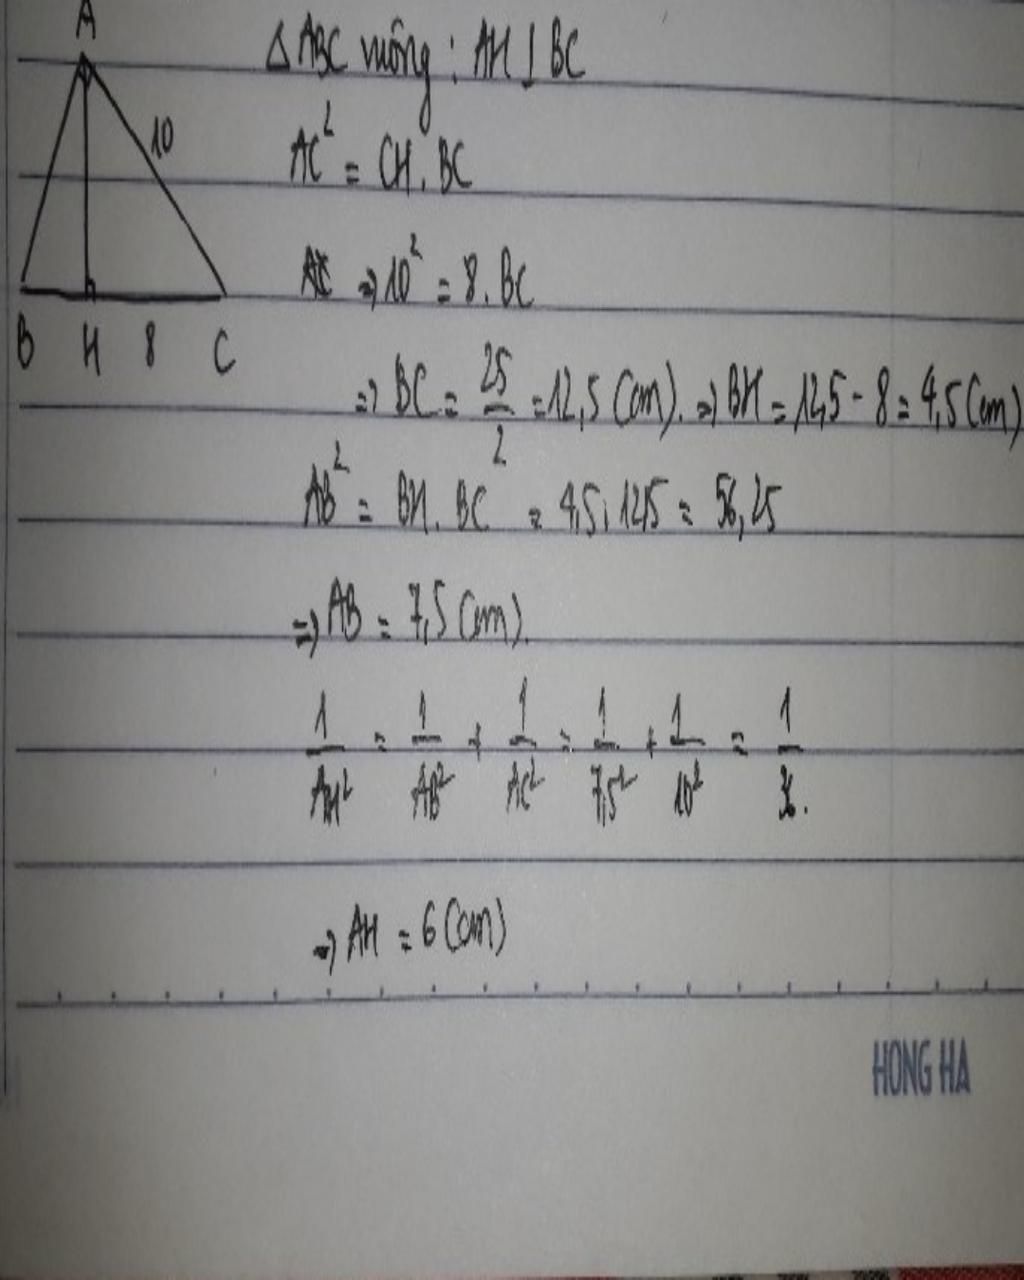 A
10
B H 8 C
Δ ABC vuông : AH ⊥ BC
AC² = CH . BC
⇒ 10² = 8 . BC
⇒ BC = 25/2 = 12,5 (cm). ⇒ BH = 12,5 - 8 = 4,5 (cm)
AB² = BH . BC = 4,5 . 12,5 = 56,25
⇒ AB = 7,5 (cm).
1/AH² = 1/AB² + 1/AC² = 1/7,5² + 1/10² = 1/36.
⇒ AH = 6 (cm)
HONG HA